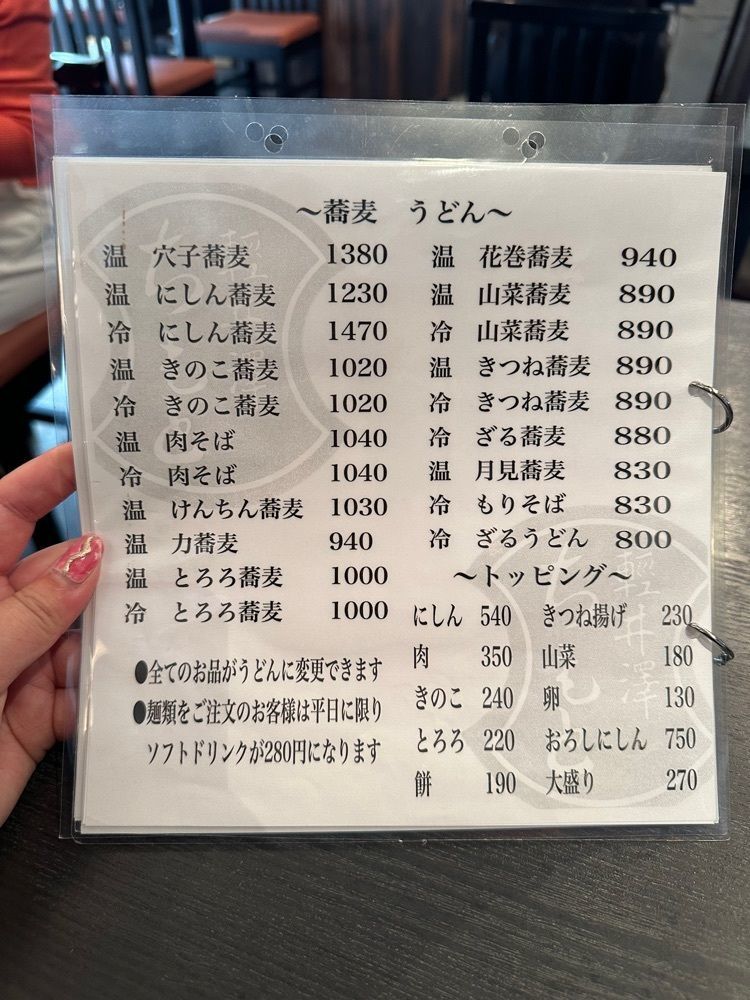 ～蕎麦　うどん～
温 穴子蕎麦 1380
温 にしん蕎麦 1230
冷 にしん蕎麦 1470
温 きのこ蕎麦 1020
冷 きのこ蕎麦 1020
温 肉そば 1040
冷 肉そば 1040
温 けんちん蕎麦 1030
温 力蕎麦 940
温 とろろ蕎麦 1000
冷 とろろ蕎麦 1000
●全てのお品がうどんに変更できます
●麺類をご注文のお客様は平日に限り
ソフトドリンクが280円になります
温 花巻蕎麦 940
温 山菜蕎麦 890
冷 山菜蕎麦 890
温 きつね蕎麦 890
冷 きつね蕎麦 890
冷 ざる蕎麦 880
温 月見蕎麦 830
冷 もりそば 830
冷 ざるうどん 800
～トッピング～
にしん 540 きつね揚げ 230
肉 350 山菜 180
きのこ 240 卵 130
とろろ 220 おろしにしん 750
餅 190 大盛り 270
軽井澤